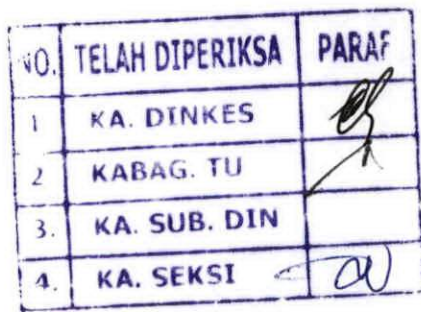 NO. TELAH DIPERIKSA PARAF
1 KA. DINKES
2 KABAG. TU
3. KA. SUB. DIN
4. KA. SEKSI